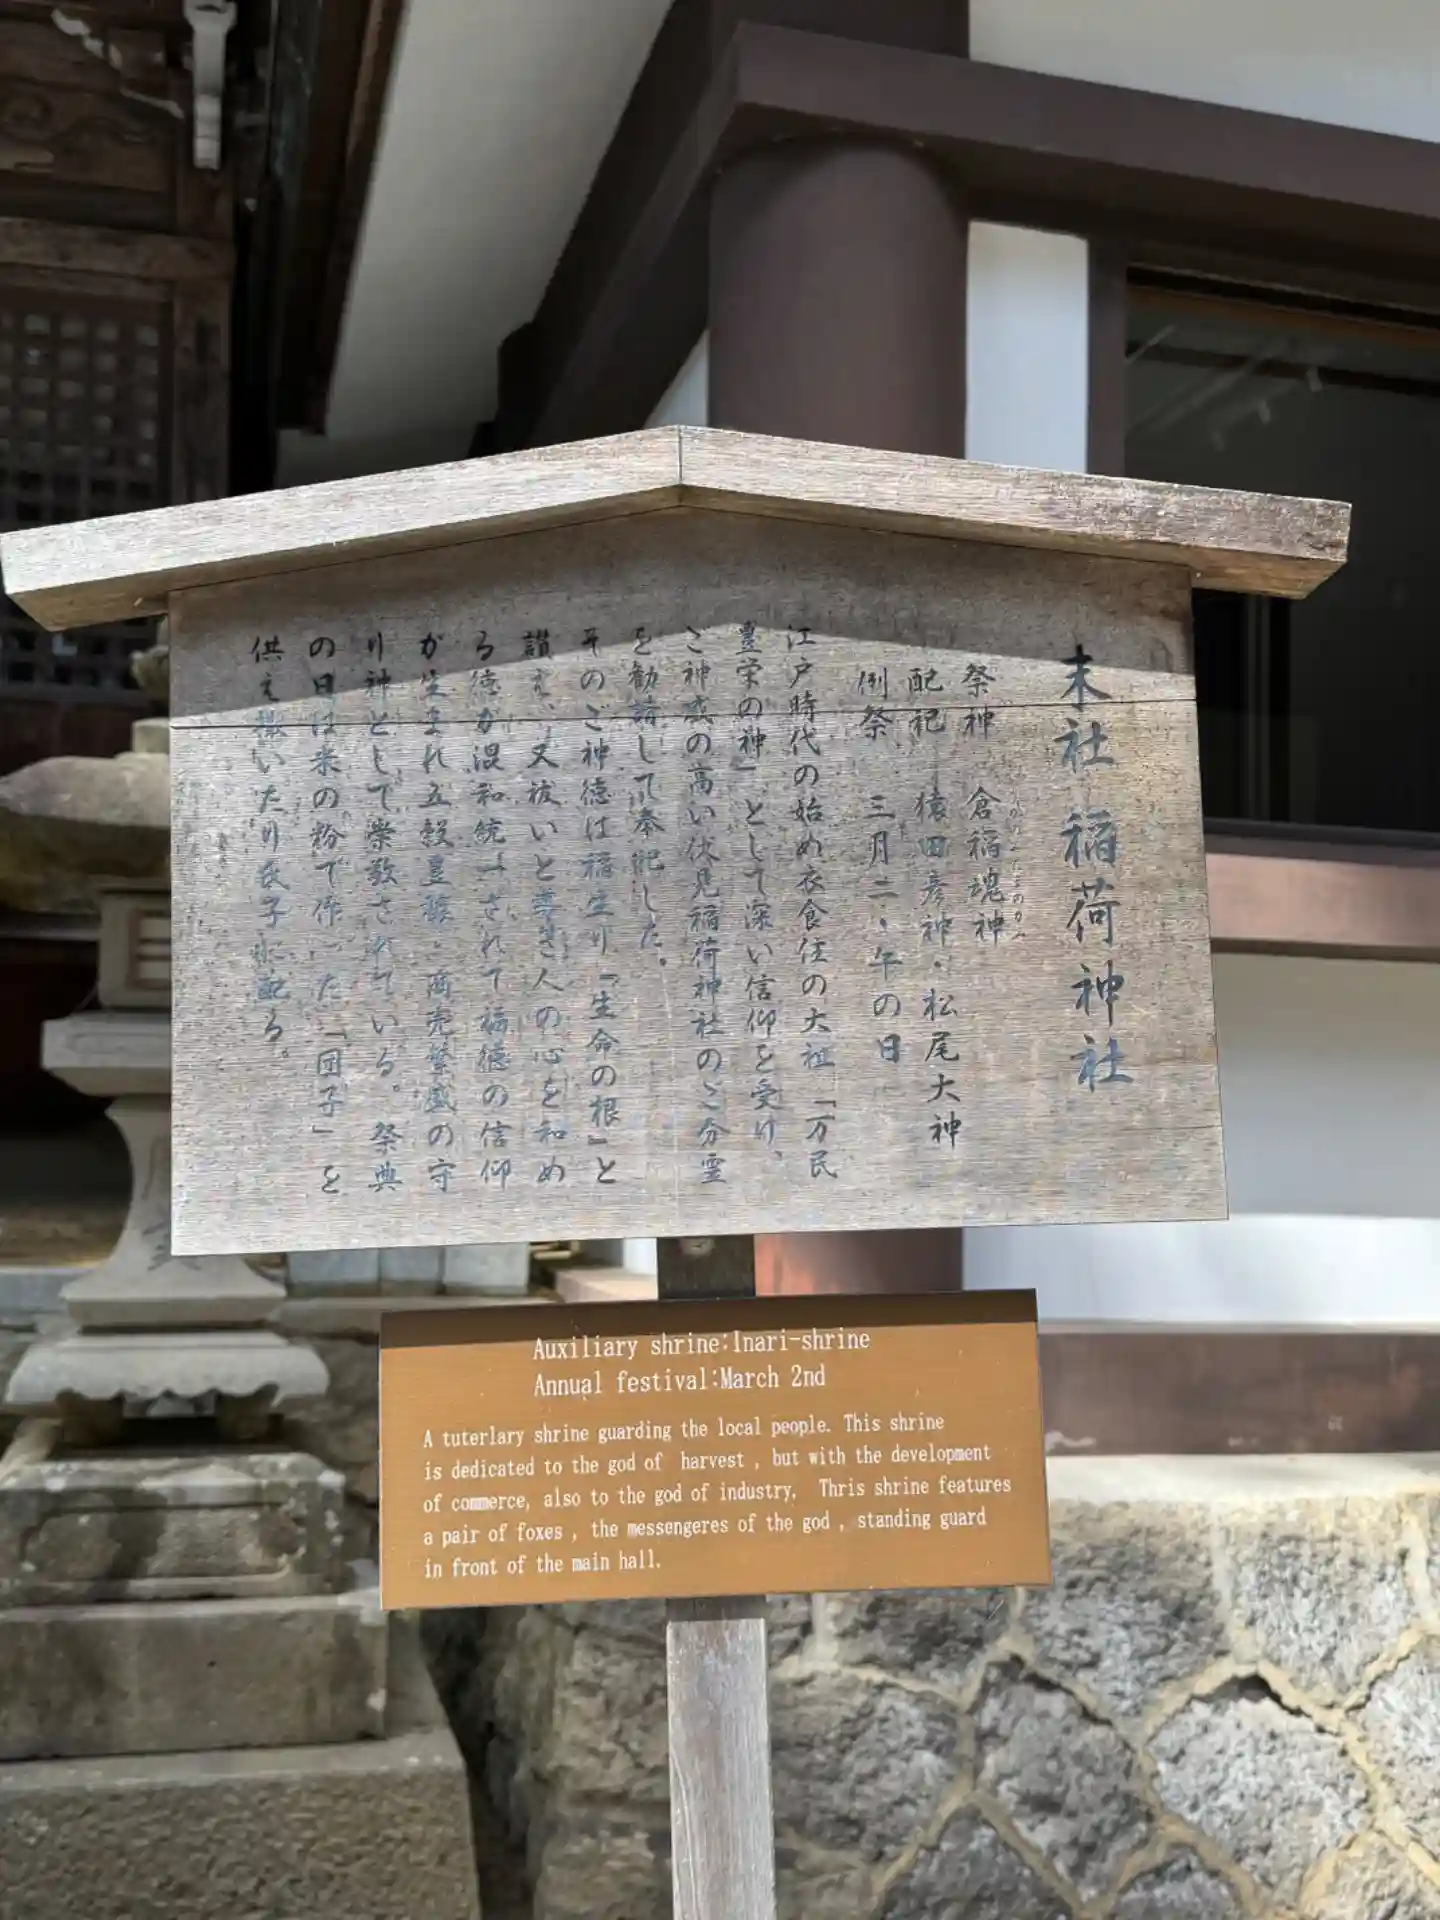 末社 稲荷神社
祭神 倉稲魂神
配祀 猿田彦神・松尾大神
例祭 三月二・午の日
江戸時代の始め衣食住の大祖「万民
豊栄の神」として深い信仰を受け、
ご神威の高い伏見稲荷神社のご分霊
を勧請して奉祀した。
そのご神徳は稲生り「生命の根」と
讃え、又祓いと尊き人の心を和め
る徳が混和統一されて福徳の信仰
が生まれ五穀豊穣・商売繁盛の守
り神として崇敬されている。祭典
の日は米の粉で作った「団子」を
供え撒いたり氏子に配る。
Auxiliary shrine:Inari-shrine
Annual festival:March 2nd
A tuterlary shrine guarding the local people. This shrine
is dedicated to the god of harvest , but with the development
of commerce, also to the god of industry, Thris shrine features
a pair of foxes , the messengeres of the god , standing guard
in front of the main hall.